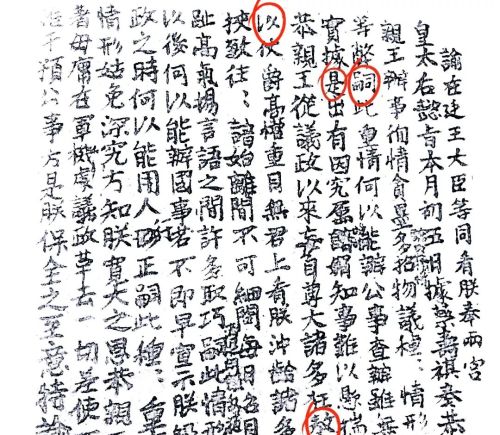 諭在廷王大臣等同看朕奉兩宮
皇太后懿旨本月初五日據蔡壽祺奏恭
親王辦事徇情貪墨多招物議種：情形
等弊嗣此重情何以能辦公事查辦雖無
實據是出有因究屬曖昧知事難以懸揣
恭親王從議政以來妄自尊大諸多狂敖
以仗爵高權重目無君上看朕沖齡諸多
挾致往：諳始離間不可細問每日召見
趾高氣揚言語之間許多取巧嗣此情形
以後何以能辦國事若不即早宣示朕歸
政之時何以能用人行正嗣此種：重
情形姑免深究方知朕寬大之恩恭親王
著毋庸在軍機處議政革去一切差使不
准干預公事方是朕保全之至意特諭